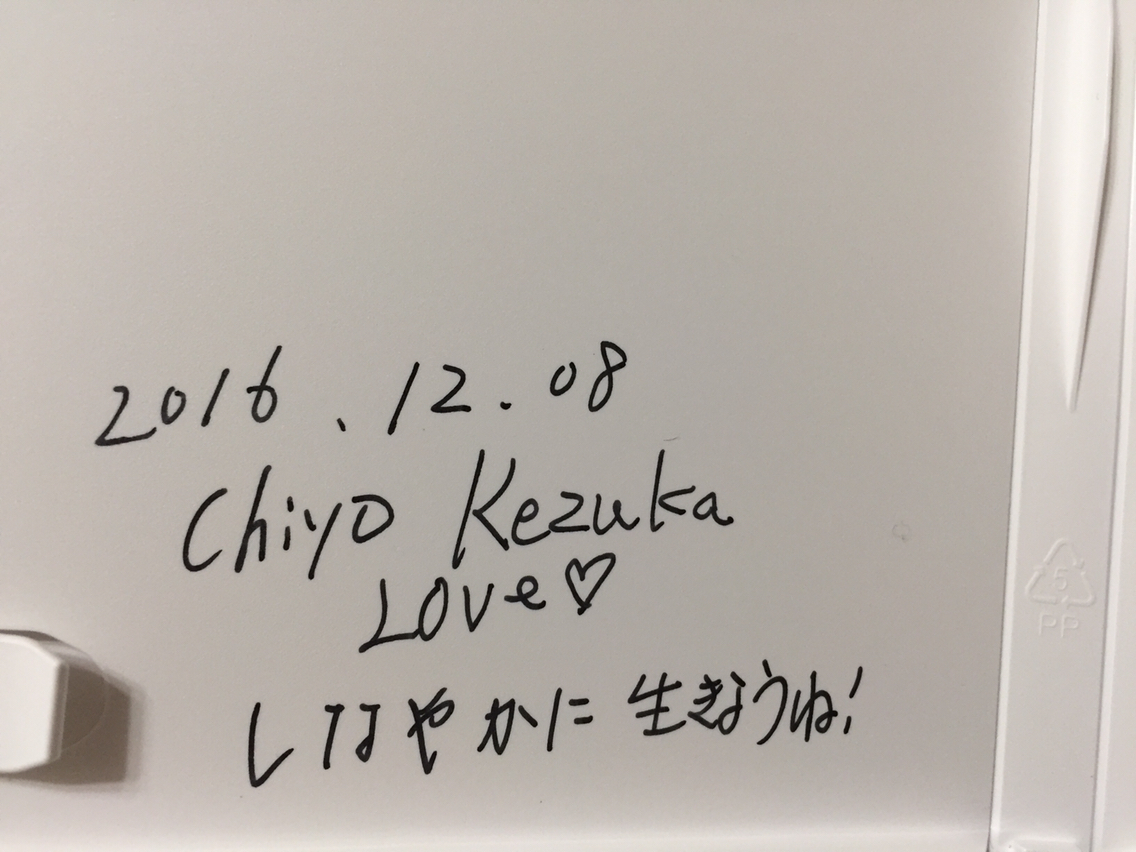 2016.12.08
Chiyo Kezuka
Love♡
しなやかに生きようね!
5
PP